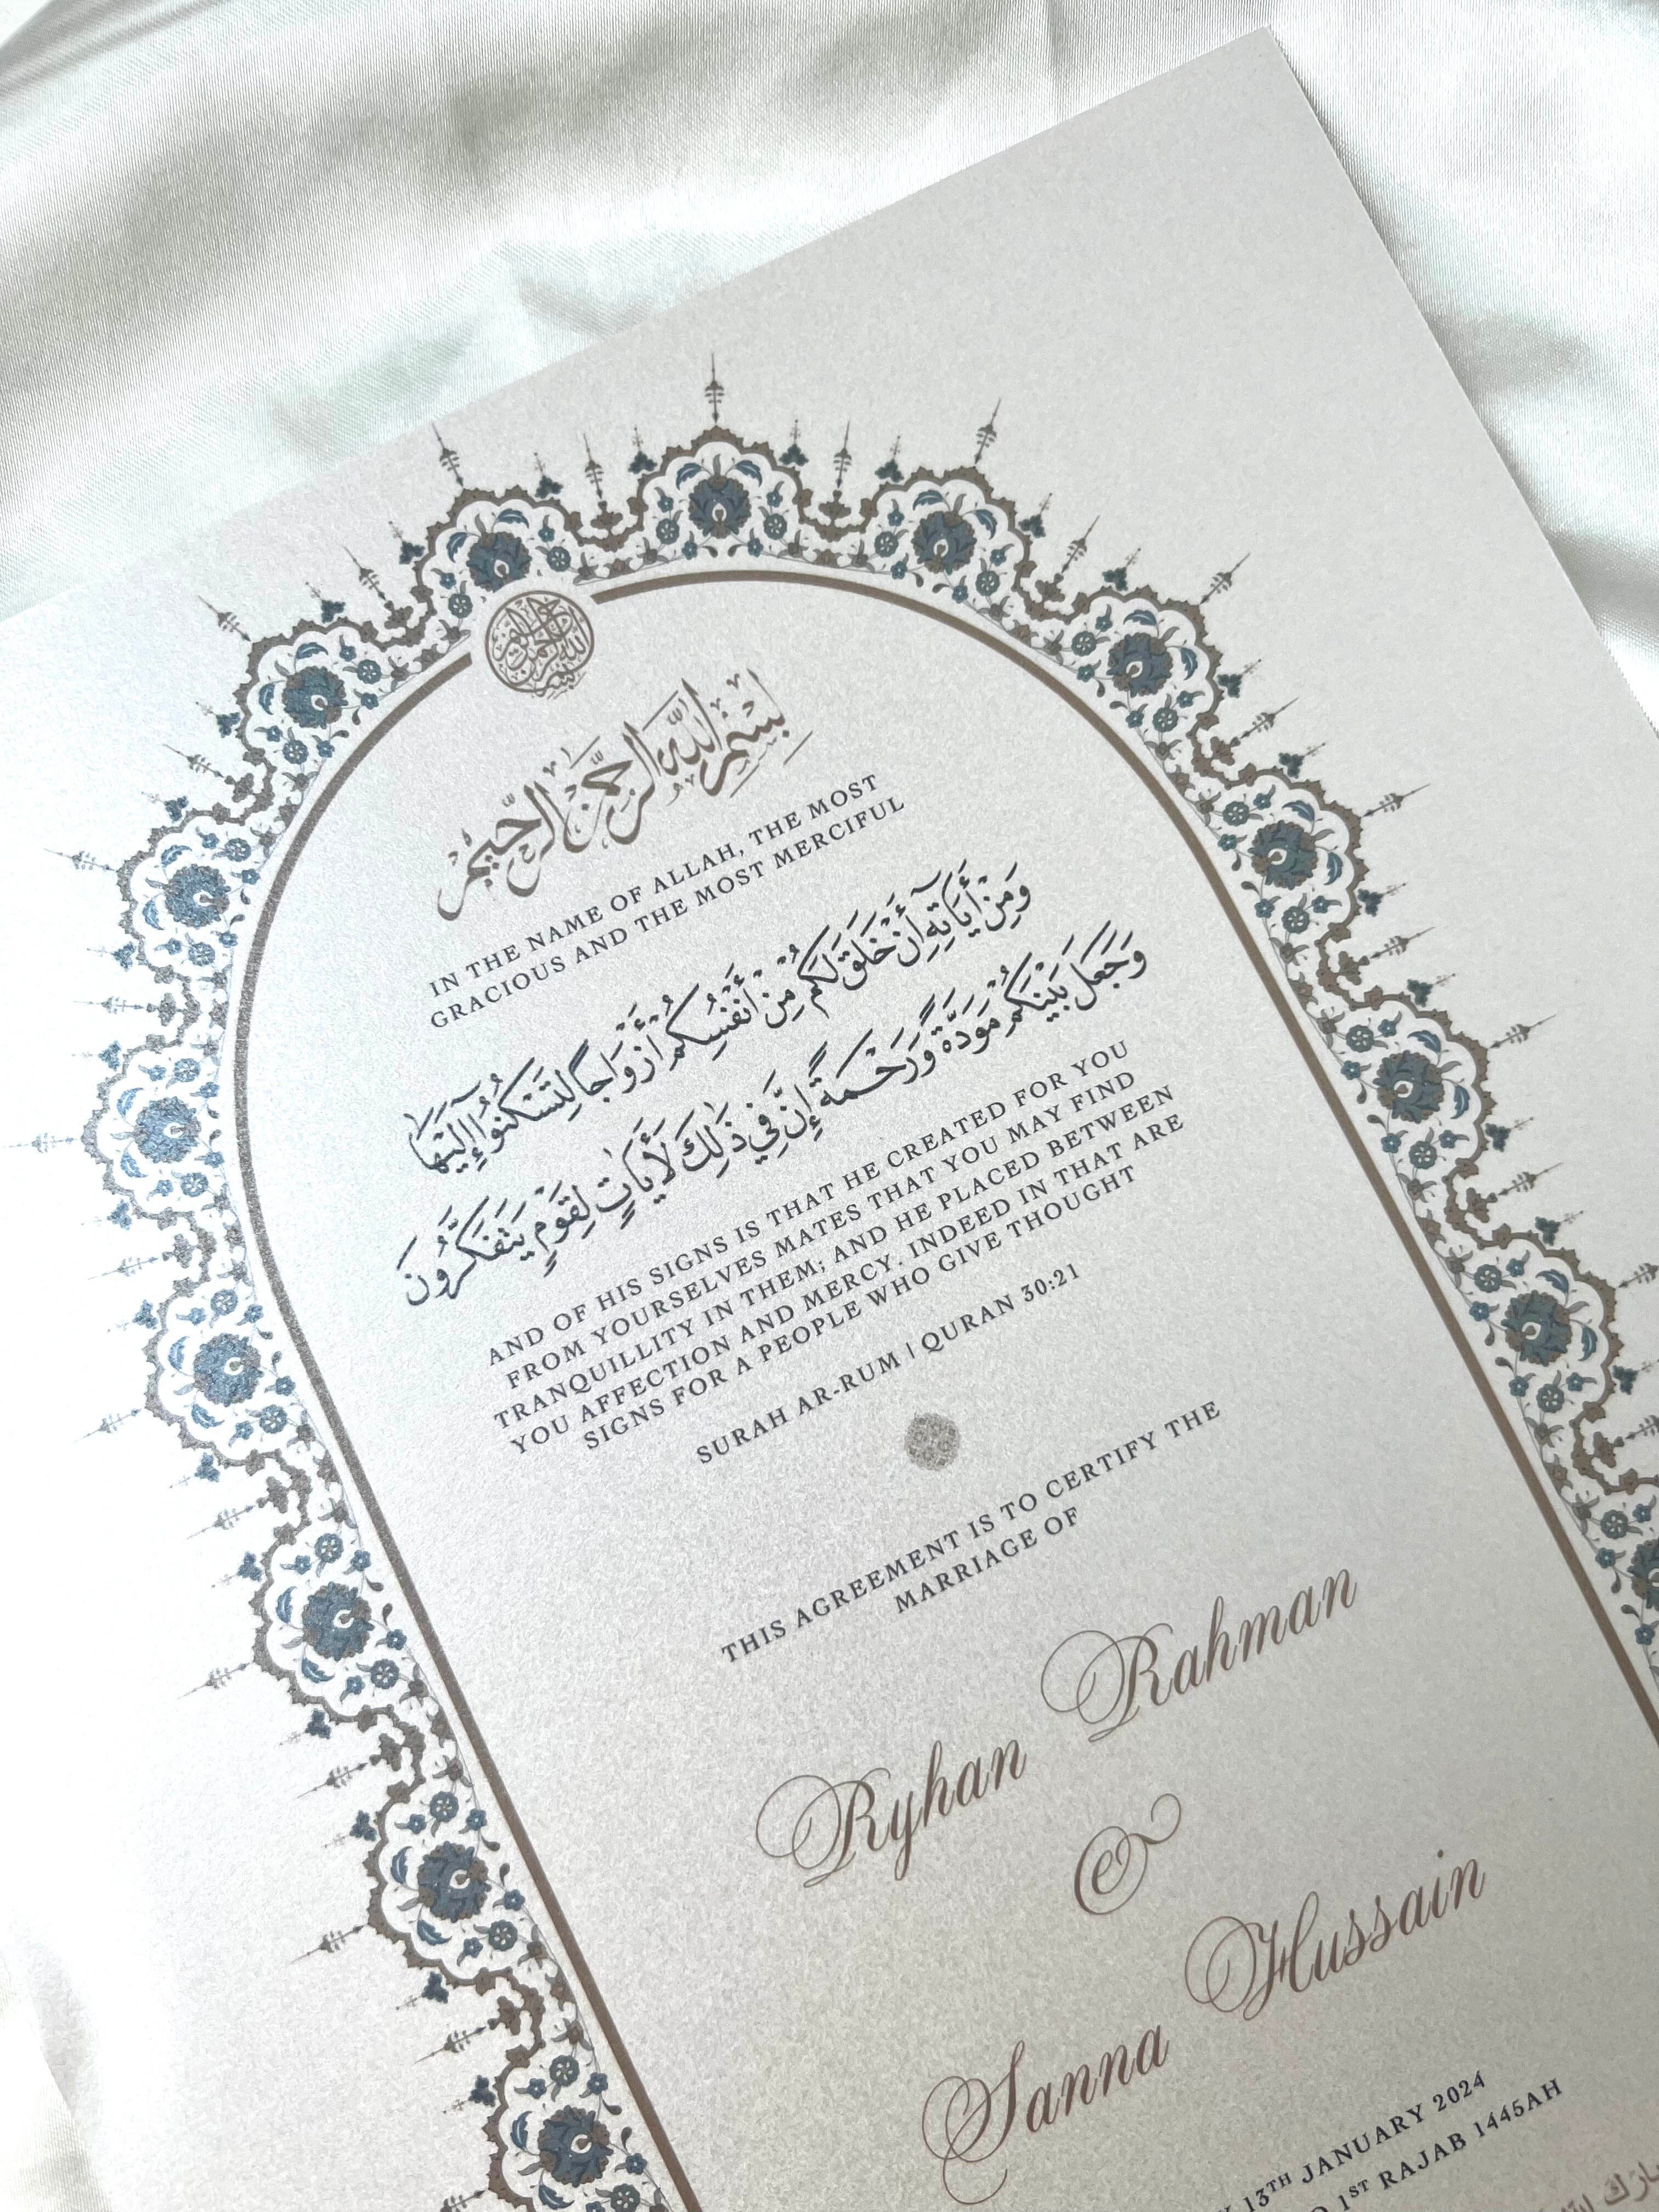 بِسْمِ اللَّهِ الرَّحْمَٰنِ الرَّحِيمِ
IN THE NAME OF ALLAH, THE MOST
GRACIOUS AND THE MOST MERCIFUL
وَمِنْ آيَاتِهِ أَنْ خَلَقَ لَكُم مِّنْ أَنفُسِكُمْ أَزْوَاجًا لِّتَسْكُنُوا إِلَيْهَا
وَجَعَلَ بَيْنَكُم مَّوَدَّةً وَرَحْمَةً إِنَّ فِي ذَٰلِكَ لَآيَاتٍ لِّقَوْمٍ يَتَفَكَّرُونَ
AND OF HIS SIGNS IS THAT HE CREATED FOR YOU
FROM YOURSELVES MATES THAT YOU MAY FIND
TRANQUILLITY IN THEM; AND HE PLACED BETWEEN
YOU AFFECTION AND MERCY. INDEED IN THAT ARE
SIGNS FOR A PEOPLE WHO GIVE THOUGHT
SURAH AR-RUM | QURAN 30:21
THIS AGREEMENT IS TO CERTIFY THE
MARRIAGE OF
Ryhan Rahman
&
Sanna Hussain
13TH JANUARY 2024
1ST RAJAB 1445AH